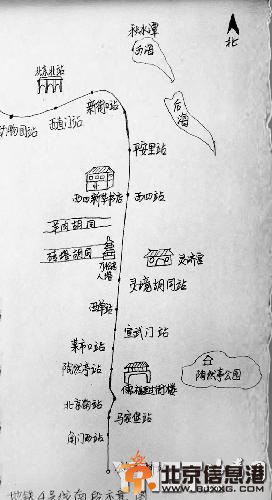 积水潭
西海
北
北京北站
后海
新街口站
西直门站
动物园站
平安里站
西四新华书店
西四站
羊肉胡同
砖塔胡同
万松老人塔
灵济宫
灵境胡同站
西单站
宣武门站
菜市口站
陶然亭站
儒福里过街楼
陶然亭公园
北京南站
马家堡站
角门西站
地铁4号线南段示意图
北京信息港
WWW.BJXXG.COM